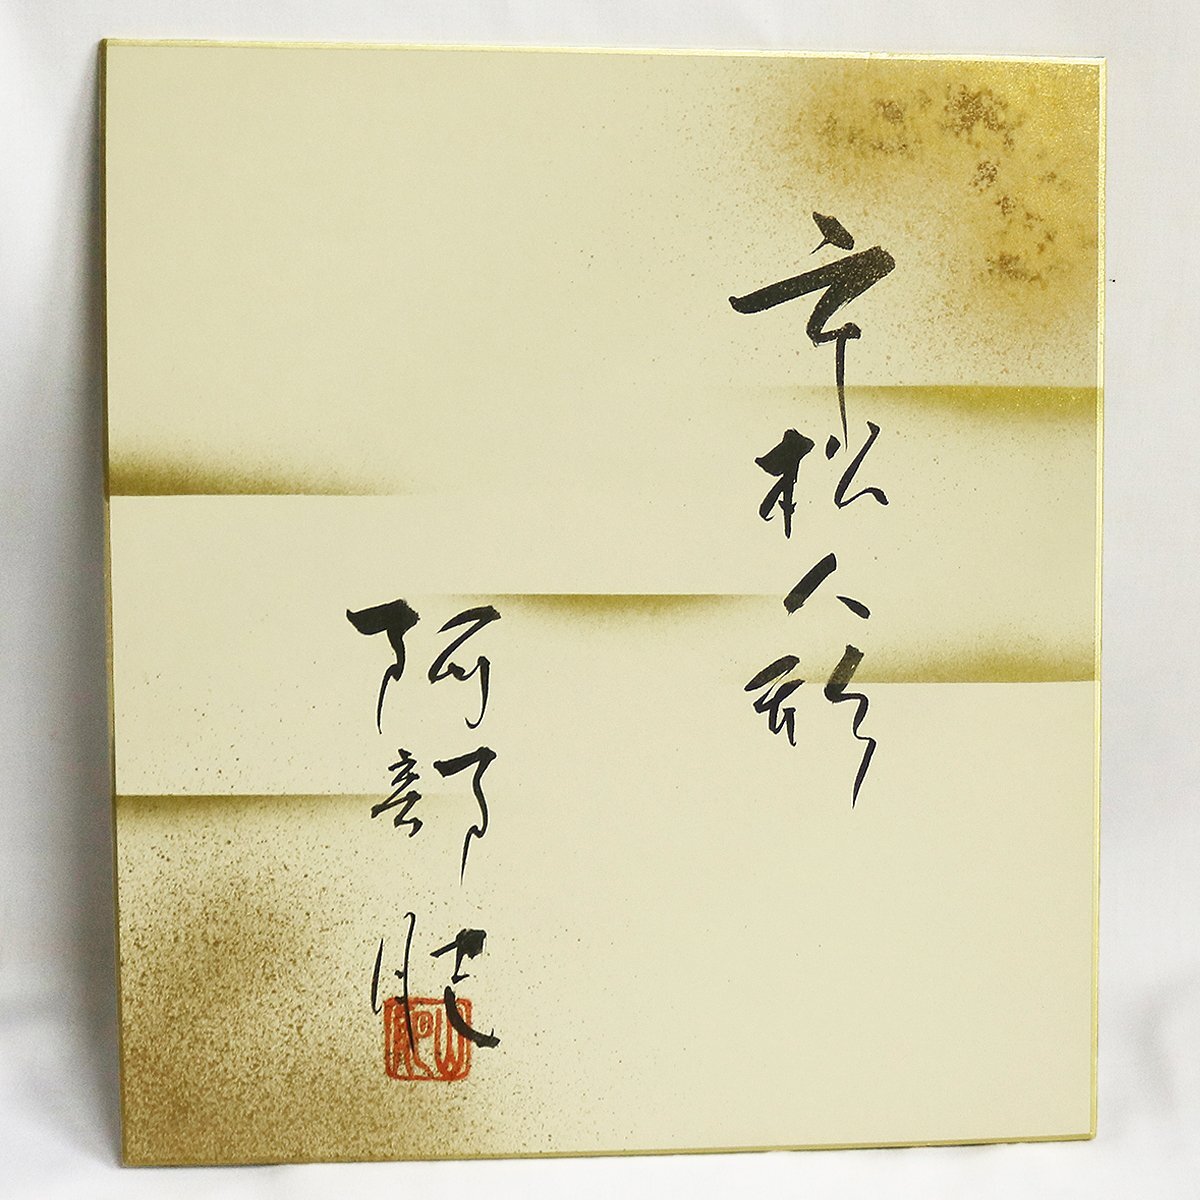 市松人形
阿部肥